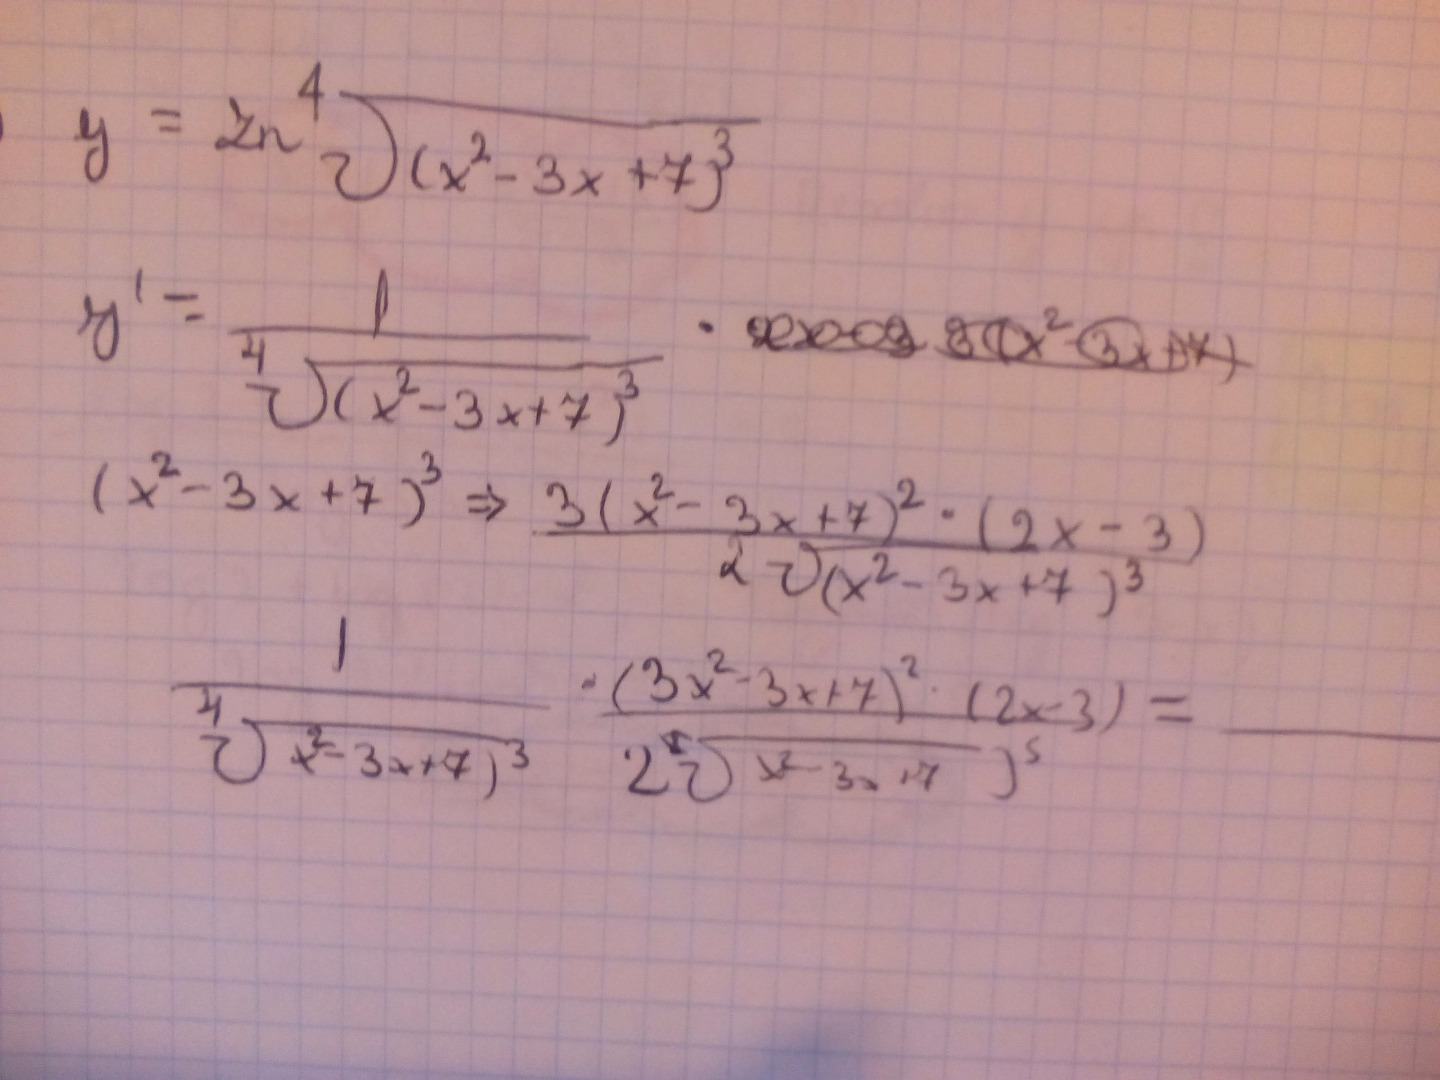 y = ln ⁴√(x² - 3x + 7)³
y' = 1 / ⁴√(x² - 3x + 7)³ ·
(x² - 3x + 7)³ ⇒ 3(x² - 3x + 7)² · (2x - 3) / 2√(x² - 3x + 7)³
1 / ⁴√x² - 3x + 7)³ · (3x² - 3x + 7)² · (2x - 3) / 2√x² - 3x + 7 ) =